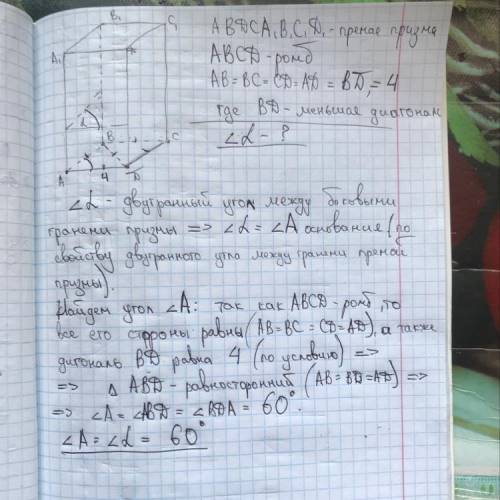 B₁
C₁
A₁
D₁
α
B
C
A
4
D
ABDCA₁B₁C₁D₁ - прямая призма
ABCD - ромб
AB = BC = CD = AD = BD₁ = 4
где BD - меньшая диагонал
∠α - ?
∠α - двугранный угол между боковыми
гранями призмы => ∠α = ∠A основание (по
свойству двугранного угла между гранями прямой
призмы).
Найдем угол ∠A: так как ABCD - ромб, то
все его стороны равны (AB = BC = CD = AD), а также
дигональ BD равна 4 (по условию) =>
=> △ ABD - равносторонний (AB = BD = AD) =>
=> ∠A = ∠ABD = ∠BDA = 60°.
∠A = ∠α = 60°